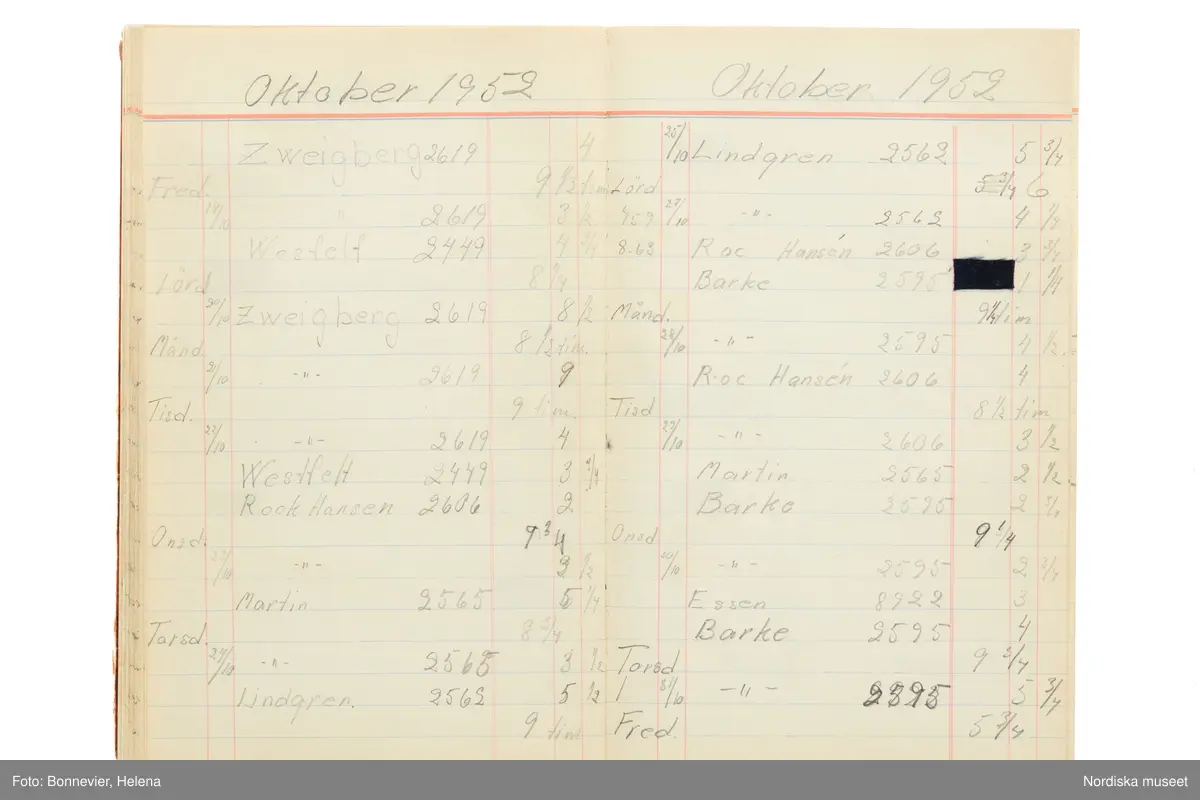 Oktober 1952
Zweigberg 2619 4
Fred. 9 1/2 tim
18/10 " 2619 3 1/2
Westfelt 2449 4 3/4
Lörd 8 1/4
20/10 Zweigberg 2619 8 1/2
Månd. 8 1/2 tim.
2/10 -"- 2619 9
Tisd. 9 tim.
22/10 -"- 2619 4
Westfelt 2449 3 3/4
Rock Hansen 2606 2
Onsd. 9 3/4
23/10 -"- 2 1/2
Martin 2565 5 1/4
Torsd. 8 3/4
24/10 -"- 2565 3 1/2
Lindgren. 2562 5 1/2
9 tim
Oktober 1952
25/10 Lindgren 2562 5 3/4
Lörd 5 3/4 6
27/10 -"- 2562 4 1/4
8.63 Roc Hansén 2606 3 3/4
Barke 2595 1 1/4
Månd. 9 1/4 tim
28/10 -"- 2595 4 1/2.
Roc Hansén 2606 4
Tisd 8 1/2 tim
29/10 -"- 2606 3 1/2
Martin 2565 2 1/2.
Barke 2595 2 3/4
Onsd 9 1/4
30/10 -"- 2595 2 3/4
Essen 8922 3
Barke 2595 4
Torsd 9 3/4
31/10 -"- 2595 5 3/4
Fred. 5 3/4
Foto: Bonnevier, Helena
Nordiska museet